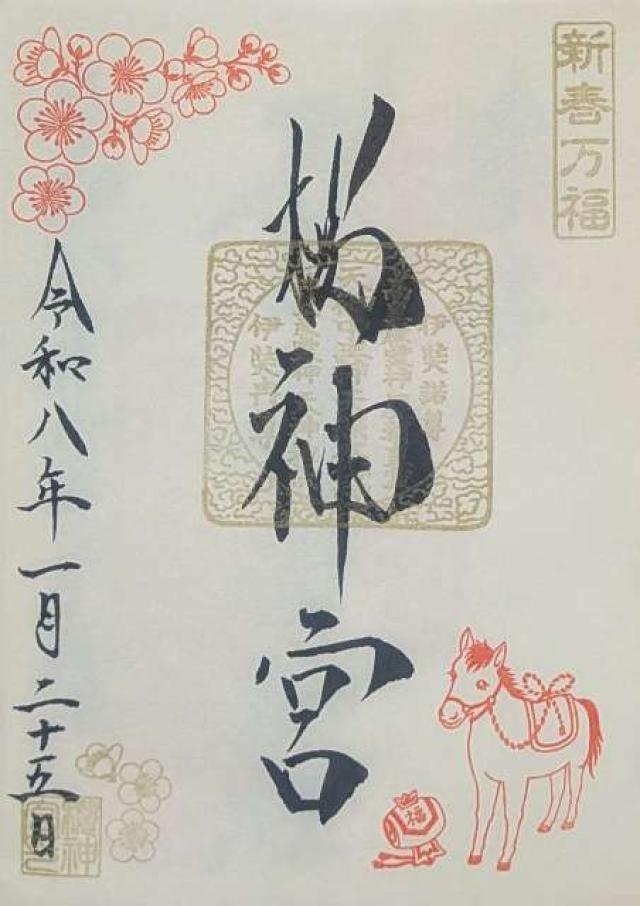 新春万福
櫻神宮
伊奘諾尊
令和八年一月二十五日
福